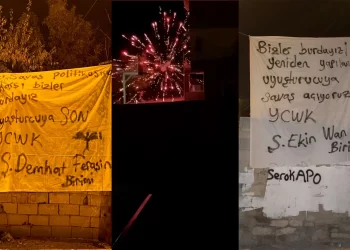 Savaş politikasına
karşı bizler
burdayız
uyuşturucuya SON
YCWK
Ş. Demhat Feraşin
Birimi
Bizler burdayız
yeniden yapılan
uyuşturucuya
savaş açıyoruz
YCWK
Ş. Ekin Wan
Birimi
SerokAPO